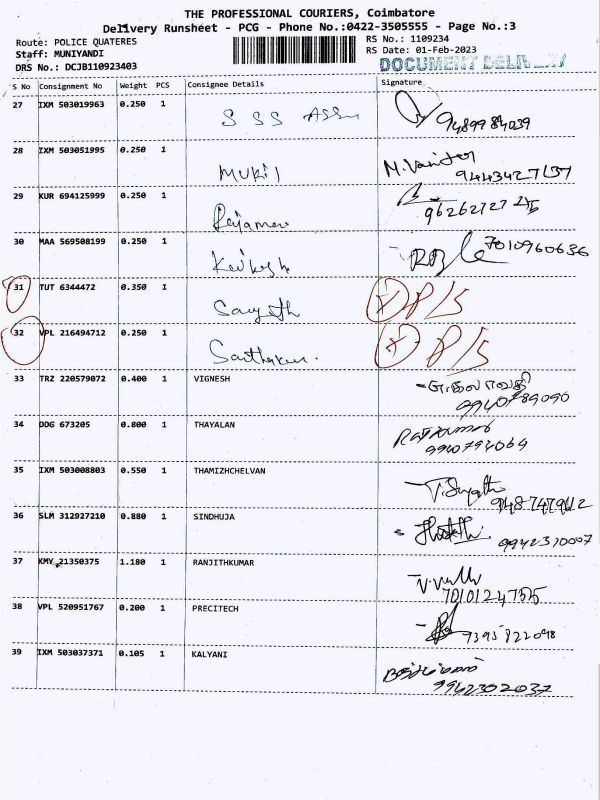 THE PROFESSIONAL COURIERS, Coimbatore
Delivery Runsheet - PCG - Phone No.:0422-3505555 - Page No.:3
Route: POLICE QUATERES
Staff: MUNIYANDI
DRS No.: DCJB110923403
RS No.: 1109234
RS Date: 01-Feb-2023
DOCUMENT DELIVERY
S No Consignment No Weight PCS Consignee Details Signature
27 IXM 503019963 0.250 1 SSS 9489984039
28 IXM 503051995 0.250 1 Mukil 9443427137
29 KUR 694125999 0.250 1
30 MAA 569508199 0.250 1 7010960636
31 TUT 6344472 0.350 1 P/S
32 VPL 216494712 0.250 1 P/S
33 TRZ 220579072 0.400 1 VIGNESH 9940789090
34 DDG 673205 0.800 1 THAYALAN 9940794064
35 IXM 503008803 0.550 1 THAMIZHCHELVAN
36 SLM 312927210 0.880 1 SINDHUJA 9942310007
37 KMY 21350375 1.180 1 RANJITHKUMAR
38 VPL 520951767 0.200 1 PRECITECH 7395822098
39 IXM 503037371 0.105 1 KALYANI 9942302037